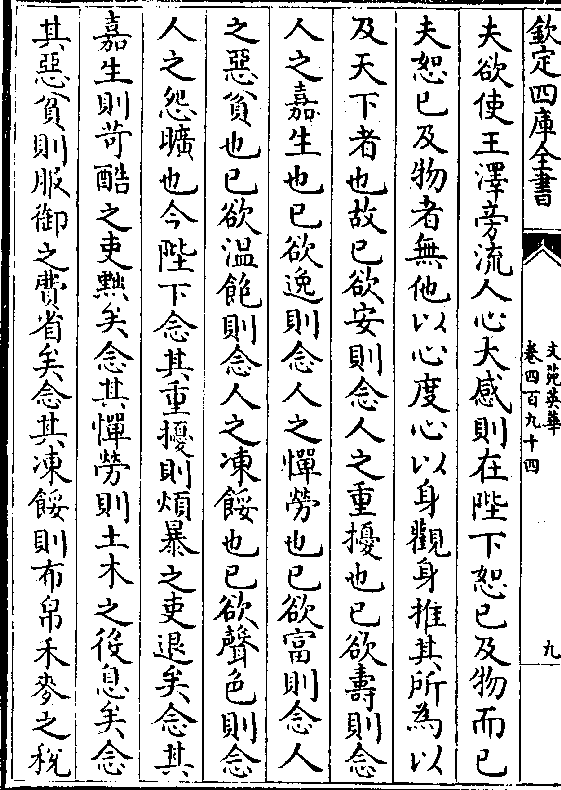 欽定四庫全書
文苑英華
卷四百九十四
九
夫欲使王澤旁流人心大感則在陛下恕已及物而已
夫恕已及物者無他以心度心以身觀身推其所為以
及天下者也故已欲安則念人之重擾也已欲壽則念
人之嘉生也已欲逸則念人之憚勞也已欲富則念人
之惡貧也已欲温飽則念人之凍餒也已欲聲色則念
人之怨曠也今陛下念其重擾則煩暴之吏退矣念其
嘉生則苛酷之吏黜矣念其憚勞則土木之役息矣念
其惡貧則服御之費省矣念其凍餒則布帛禾麥之稅